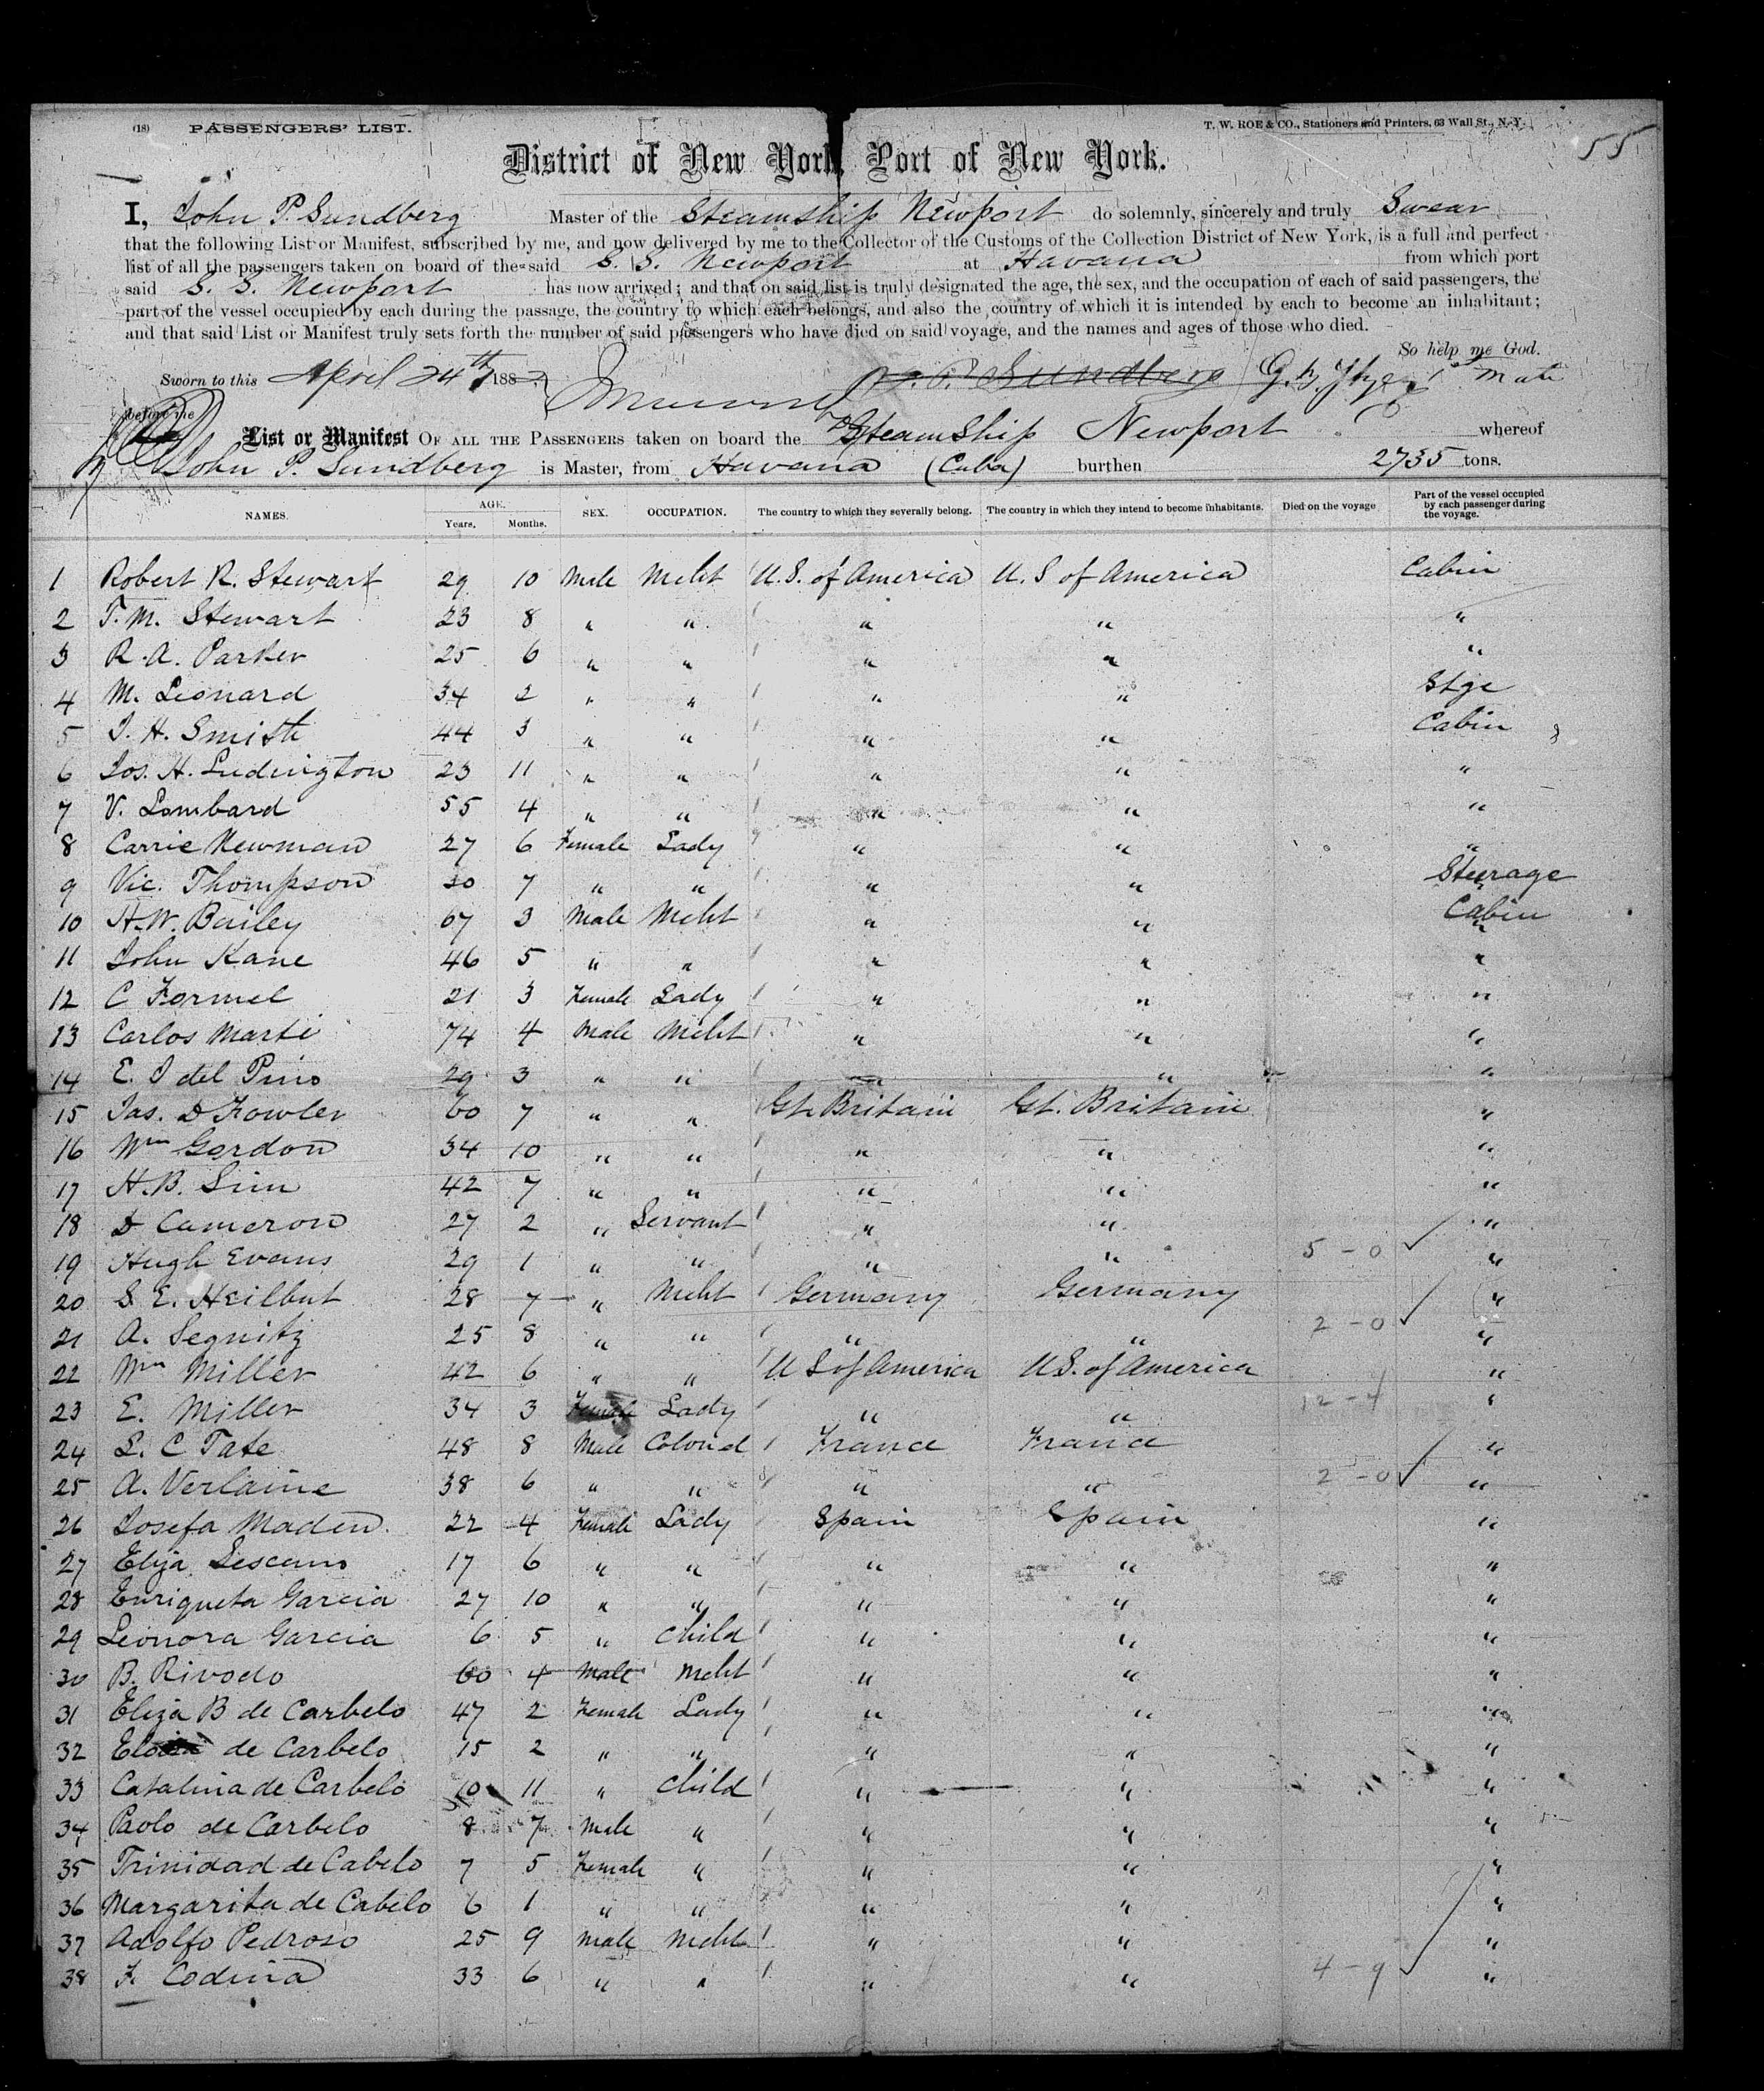 (18) PASSENGERS' LIST.
T. W. ROE & CO., Stationers and Printers, 63 Wall St., N.Y.
55
District of New York, Port of New York.
I, John P. Sundberg Master of the Steamship Newport do solemnly, sincerely and truly Swear
that the following List or Manifest, subscribed by me, and now delivered by me to the Collector of the Customs of the Collection District of New York, is a full and perfect
list of all the passengers taken on board of the said S. S. Newport at Havana from which port
said S. S. Newport has now arrived; and that on said list is truly designated the age, the sex, and the occupation of each of said passengers, the
part of the vessel occupied by each during the passage, the country to which each belongs, and also the country of which it is intended by each to become an inhabitant;
and that said List or Manifest truly sets forth the number of said passengers who have died on said voyage, and the names and ages of those who died.
So help me God.
Sworn to this April 24th 188 P. Sundberg Mate
before me
List or Manifest OF ALL THE PASSENGERS taken on board the Steamship Newport whereof
John P. Sundberg is Master, from Havana (Cuba) burthen 2735 tons.
NAMES. AGE. Years. Months. SEX. OCCUPATION. The country to which they severally belong. The country in which they intend to become inhabitants. Died on the voyage Part of the vessel occupied by each passenger during the voyage.
1 Robert R. Stewart 29 10 Male Mcht U.S. of America U.S of America Cabin
2 T. M. Stewart 23 8 " " " " "
3 R. A. Parker 25 6 " " " " "
4 M. Leonard 34 2 " " " " Stge
5 J. H. Smith 44 3 " " " " Cabin
6 Jos. H. Ludington 23 11 " " " " "
7 V. Lombard 55 4 " " " " "
8 Carrie Newman 27 6 Female Lady " " "
9 Vic. Thompson 30 7 " " " " Steerage
10 H. W. Bailey 67 3 Male Mcht " " Cabin
11 John Kane 46 5 " " " " "
12 C Formel 21 3 Female Lady " " "
13 Carlos Marti 74 4 Male Mcht " " "
14 E. J del Pino 29 3 " " " " "
15 Jas. D Fowler 60 7 " " Gt. Britain Gt. Britain "
16 Wm Gordon 34 10 " " " " "
17 H. B. Sim 42 7 " " " " "
18 D Cameron 27 2 " Servant " " "
19 Hugh Evans 29 1 " " " " 5 - 0 "
20 S. E. Heilbut 28 7 " Mcht Germany Germany "
21 A. Segnitz 25 8 " " " " 2 - 0 "
22 Wm Miller 42 6 " " U S of America U.S. of America "
23 E. Miller 34 3 Female Lady " " 12 - 4 "
24 L. C Tate 48 8 Male Colond France France "
25 A. Verlaine 38 6 " " " " 2 - 0 "
26 Josefa Maden. 22 4 Female Lady Spain Spain "
27 Eliza 17 6 " " " " "
28 Enriqueta Garcia 27 10 " " " " "
29 Leonora Garcia 6 5 " Child " " "
30 B. Rivodo 60 4 Male Mcht " " "
31 Eliza B de Carbelo 47 2 Female Lady " " "
32 de Carbelo 15 2 " " " " "
33 Catalina de Carbelo 10 11 " Child " " "
34 Paolo de Carbelo 8 7 Male " " " "
35 Trinidad de Cabelo 7 5 Female " " " "
36 Margarita de Cabelo 6 1 " " " " "
37 Adolfo Pedroso 25 9 Male Mcht " " "
38 F. Codina 33 6 " " " " 4 - 9 "